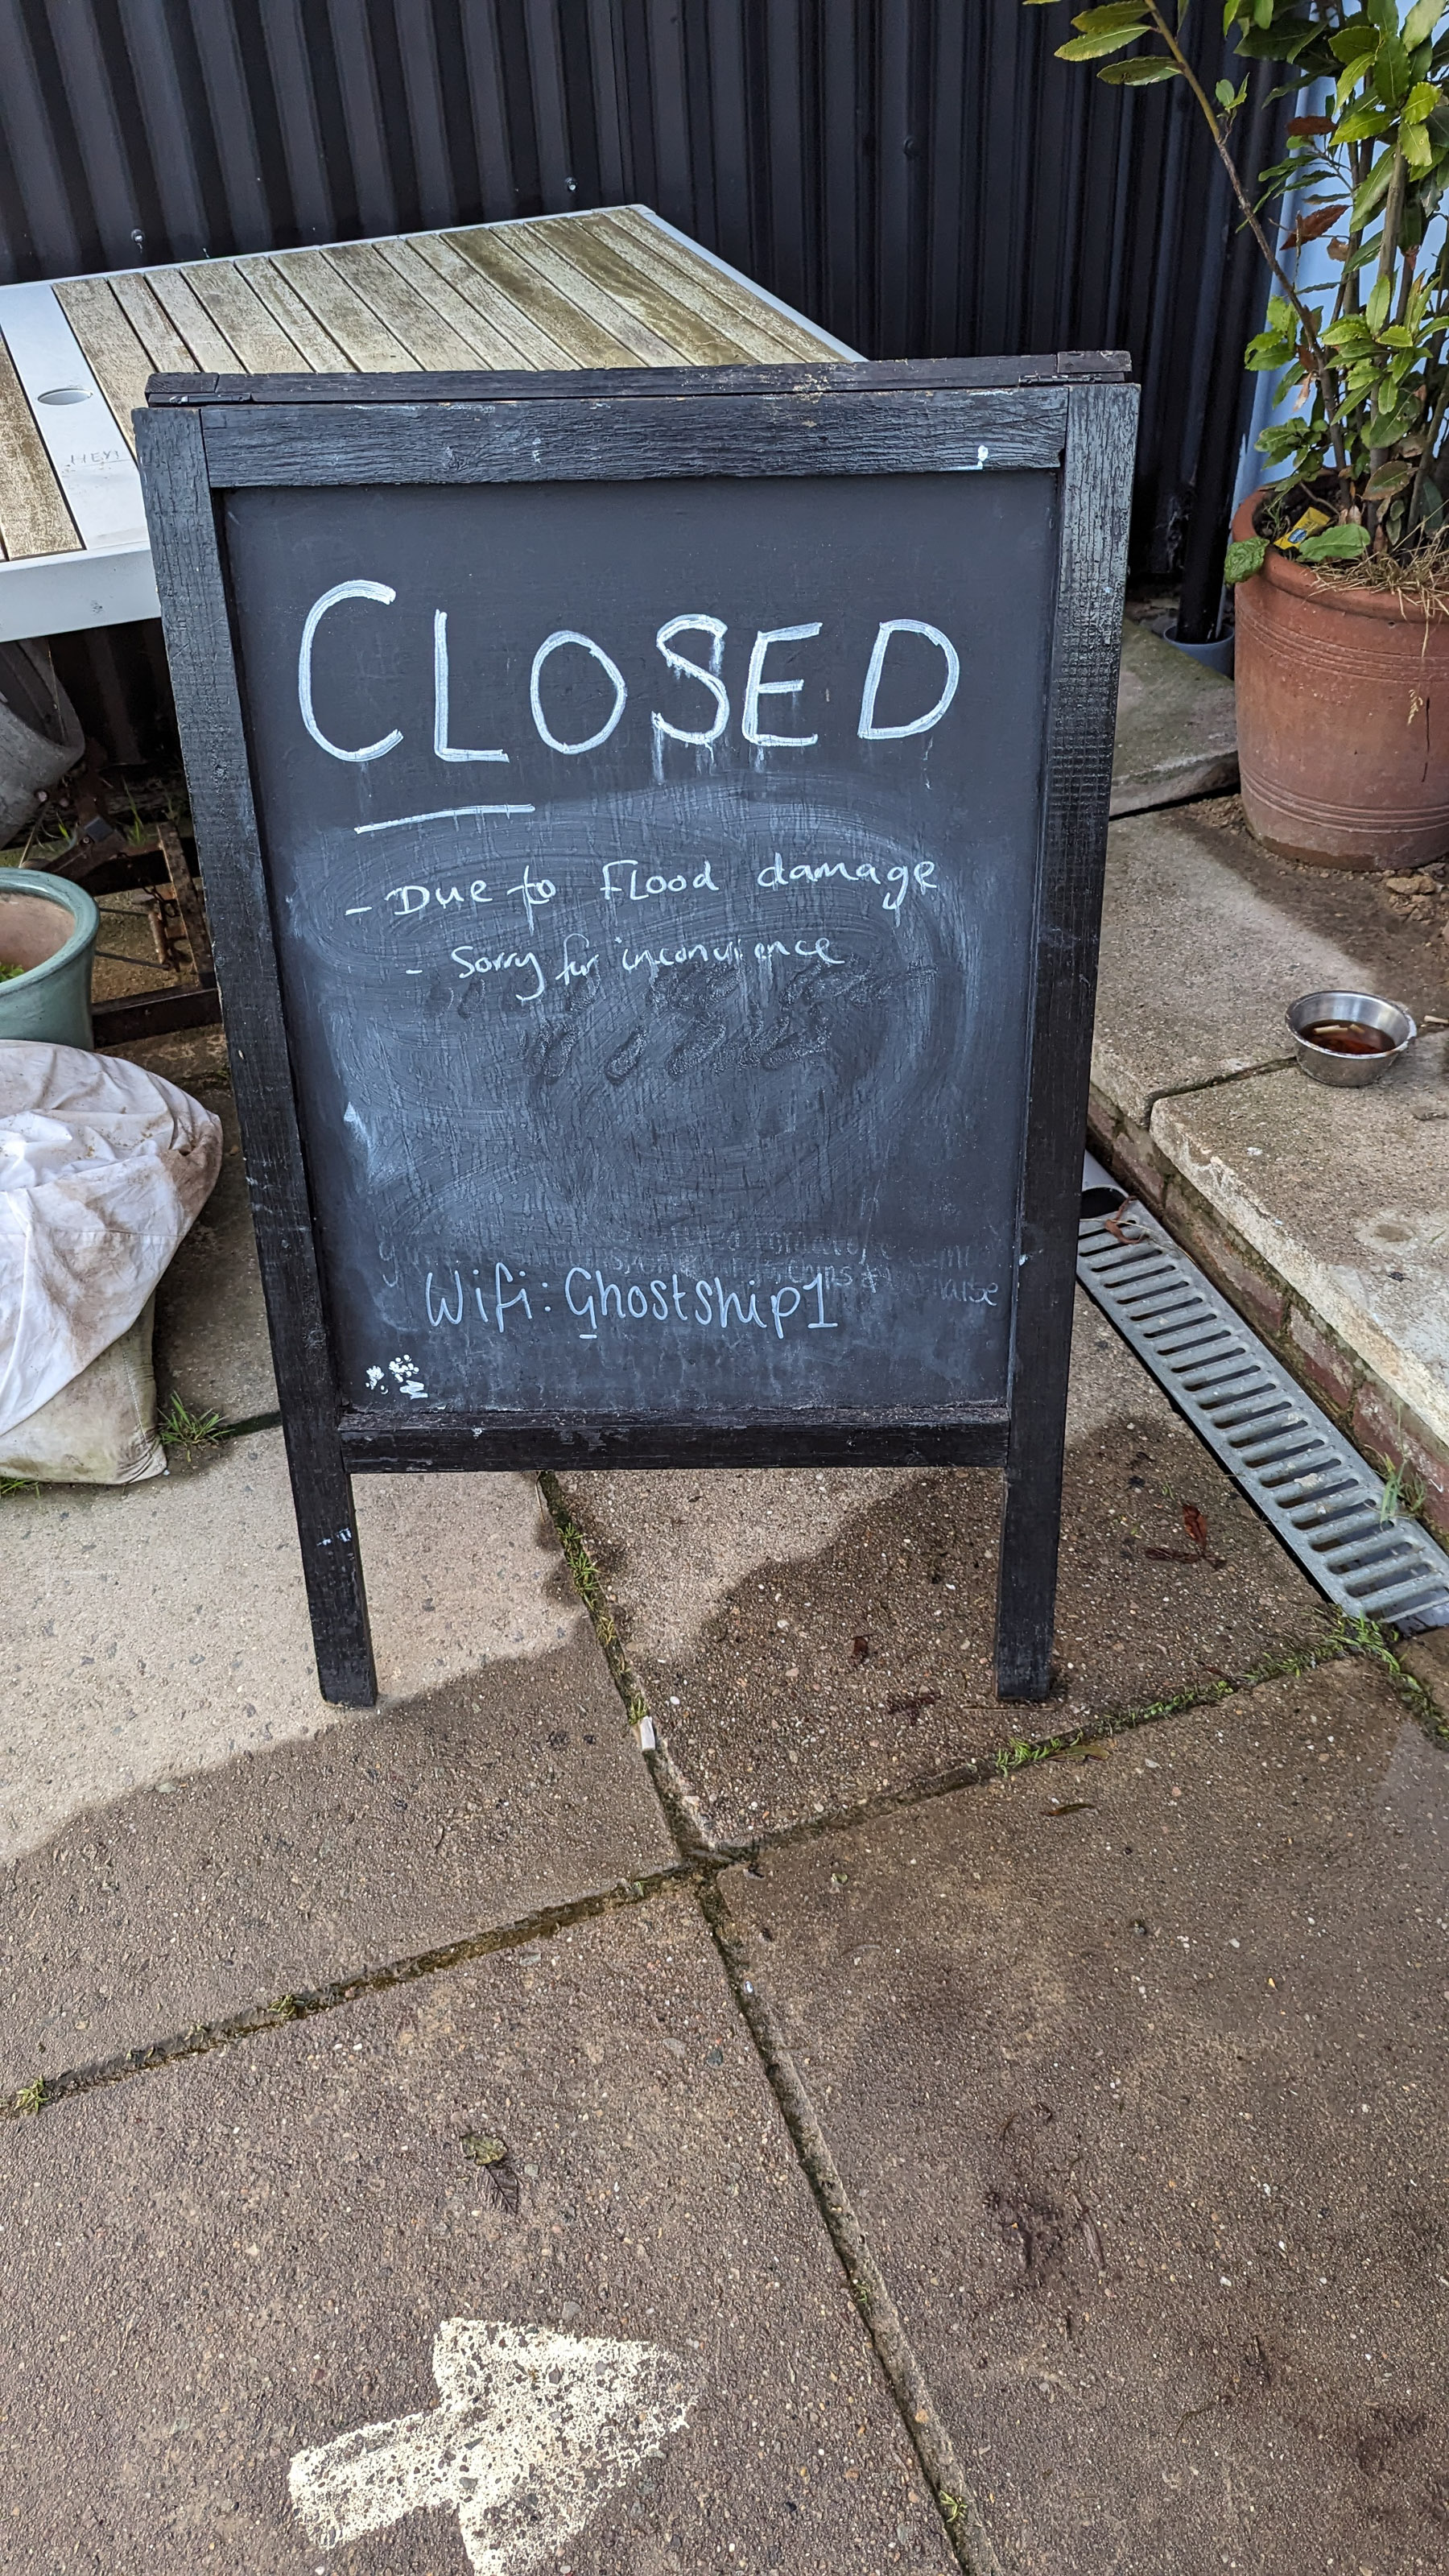 CLOSED
- Due to Flood damage
- Sorry for inconvience
Wifi: Ghostship1